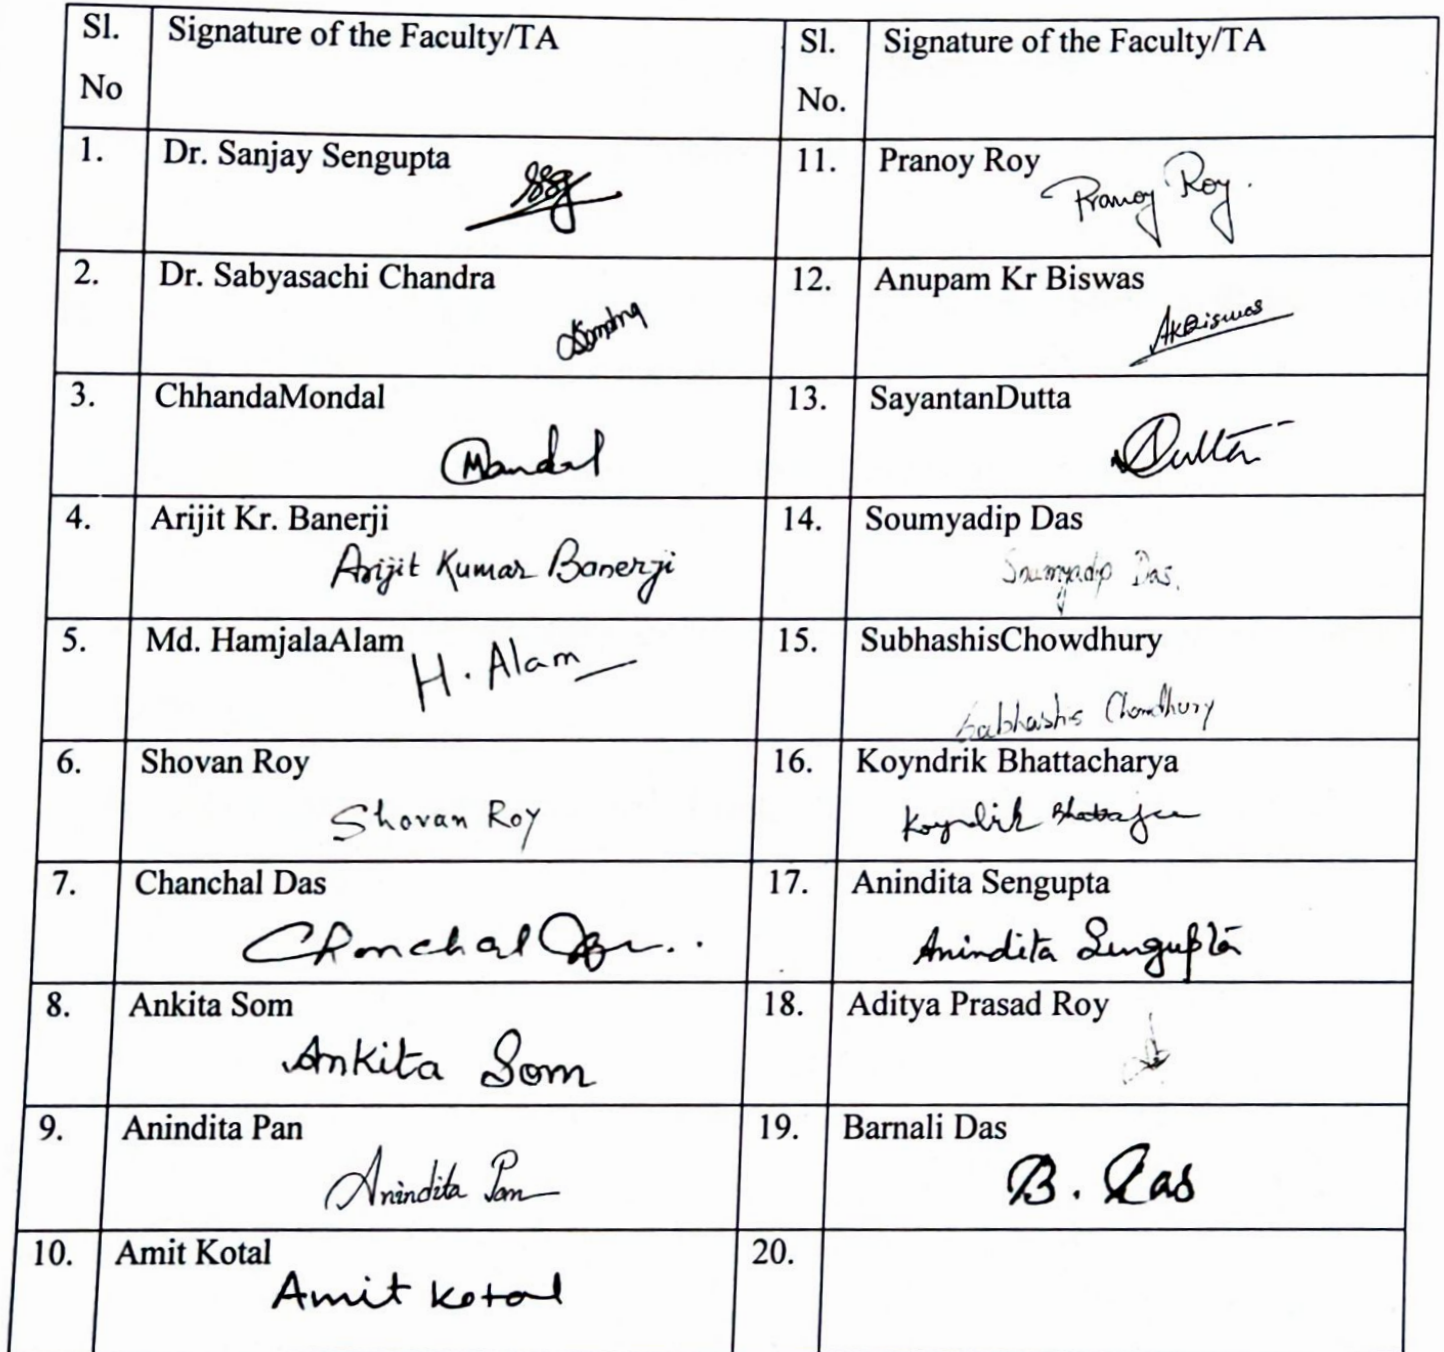 Sl.
No
Signature of the Faculty/TA
Sl.
No.
Signature of the Faculty/TA
1.
Dr. Sanjay Sengupta
SSg
11.
Pranoy Roy
Pranoy Roy.
2.
Dr. Sabyasachi Chandra
12.
Anupam Kr Biswas
AKBiswas
3.
ChhandaMondal
Mandal
13.
SayantanDutta
Dutta
4.
Arijit Kr. Banerji
Arijit Kumar Banerji
14.
Soumyadip Das
Soumyadip Das.
5.
Md. HamjalaAlam
H. Alam
15.
SubhashisChowdhury
Subhashis Chowdhury
6.
Shovan Roy
Shovan Roy
16.
Koyndrik Bhattacharya
Koyndrik Bhattacharjee
7.
Chanchal Das
Chanchal Das..
17.
Anindita Sengupta
Anindita Sengupta
8.
Ankita Som
Ankita Som
18.
Aditya Prasad Roy
9.
Anindita Pan
Anindita Pan
19.
Barnali Das
B. Das
10.
Amit Kotal
Amit Kotal
20.